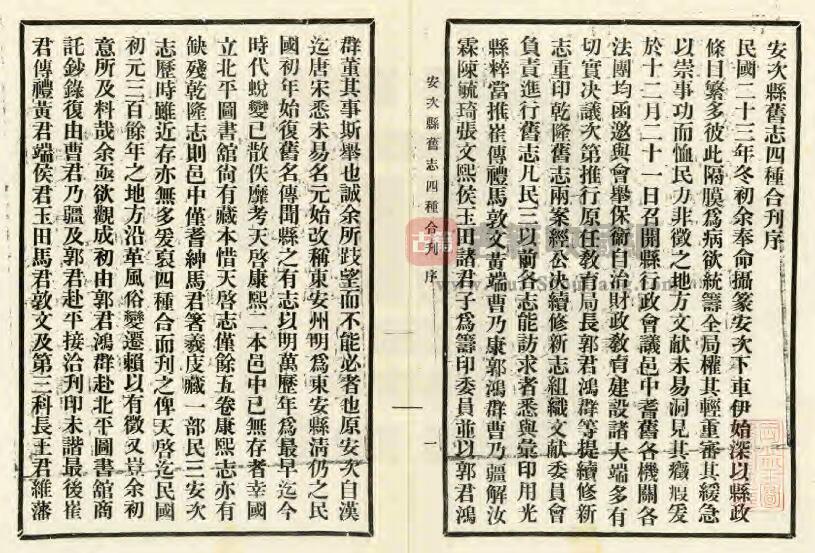 安次縣舊志四種合刊序
民國二十三年冬初余奉命攝篆安次下車伊始深以縣政
條目繁多彼此隔膜爲病欲統籌全局權其輕重審其緩急
以崇事功而恤民力非徵之地方文獻未易洞見其癥瘕爰
於十二月二十一日召開縣行政會議邑中耆舊各機關各
法團均函邀與會舉保衞自治財政敎育建設諸大端多有
切實決議次第推行原任敎育局長郭君鴻羣等提續修新
志重印乾隆舊志兩案經公決續修新志組織文獻委員會
負責進行舊志凡民三以前各志能訪求者悉與彙印用光
縣粹當推崔傳禮馬敦文黃端曹乃康郭鴻羣曹乃疆解汝
霖陳毓琦張文熙侯玉田諸君子爲籌印委員並以郭君鴻
安次縣舊志四種合刊 序
一
羣董其事斯舉也誠余所跂望而不能必者也原安次自漢
迄唐宋悉未易名元始改稱東安州明爲東安縣清仍之民
國初年始復舊名傳聞縣之有志以明萬歷年爲最早迄今
時代蛻變已散佚靡考天啓康熙二本邑中已無存者幸國
立北平圖書舘尙有藏本惜天啓志僅餘五卷康熙志亦有
缺殘乾隆志則邑中僅耆紳馬君箸羲庋藏一部民三安次
志歷時雖近存亦無多爰裒四種合而刊之俾天啓迄民國
初元三百餘年之地方沿革風俗變遷賴以有徵又豈余初
意所及料哉余亟欲觀成初由郭君鴻羣赴北平圖書舘商
託鈔錄復由曹君乃疆及郭君赴平接洽刊印未諧最後崔
君傳禮黃君端侯君玉田馬君敦文及第三科長王君維藩